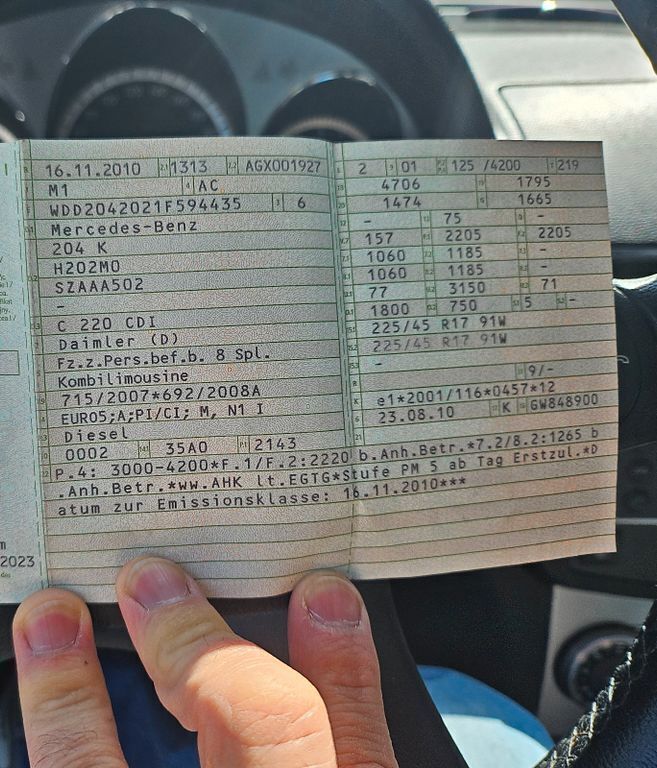 16.11.2010 1313 AGX001927
M1 AC
WDD2042021F594435 6
Mercedes-Benz
204 K
H202M0
SZAAA502
-
C 220 CDI
Daimler (D)
Fz.z.Pers.bef.b. 8 Spl.
Kombilimousine
715/2007*692/2008A
EURO5;A;PI/CI; M, N1 I
Diesel
0002 35A0 2143
2 01 125 /4200 219
4706 1795
1474 1665
- 75 -
157 2205 2205
1060 1185 -
1060 1185 -
77 3150 71
1800 750 5 -
225/45 R17 91W
225/45 R17 91W
-
9/-
e1*2001/116*0457*12
23.08.10 K GW848900
P.4: 3000-4200*F.1/F.2:2220 b.Anh.Betr.*7.2/8.2:1265 b
.Anh.Betr.*ww.AHK lt.EGTG*Stufe PM 5 ab Tag Erstzul.*D
atum zur Emissionsklasse: 16.11.2010***
2023